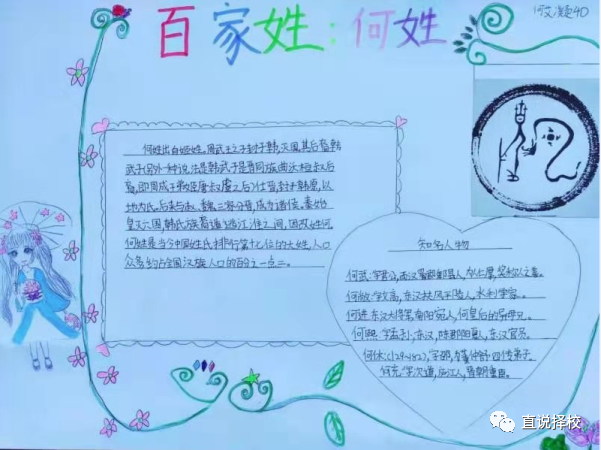 百家姓：何姓
何姓出自姬姓。周武王之子封于韩，灭国，其后裔韩
武子（另外一种说法是韩武子是晋同族曲沃桓叔后
裔，即周成王弟姬唐叔虞之后）仕晋，封于韩原，以
地为氏，后来与赵、魏三家分晋，成为诸侯。秦始
皇灭六国，韩氏族
江淮之间，因改姓何。
何姓是当今中国姓氏排行第十七位的大姓，人口
众多，约占全国汉族人口的百分之一点二。
知名人物
何武：字君公，西汉蜀郡郫县人，
何敞：字文高，东汉扶风平陵人，水利学家。
何进：东汉大将军，南阳宛人，何皇后的异母兄。
何熙：字孟孙，东汉，陈郡阳夏人，东汉官员。
何休：(129-182)，字邵公，董仲舒四传弟子。
何充：字次道，庐江人，晋朝重臣。
直说择校